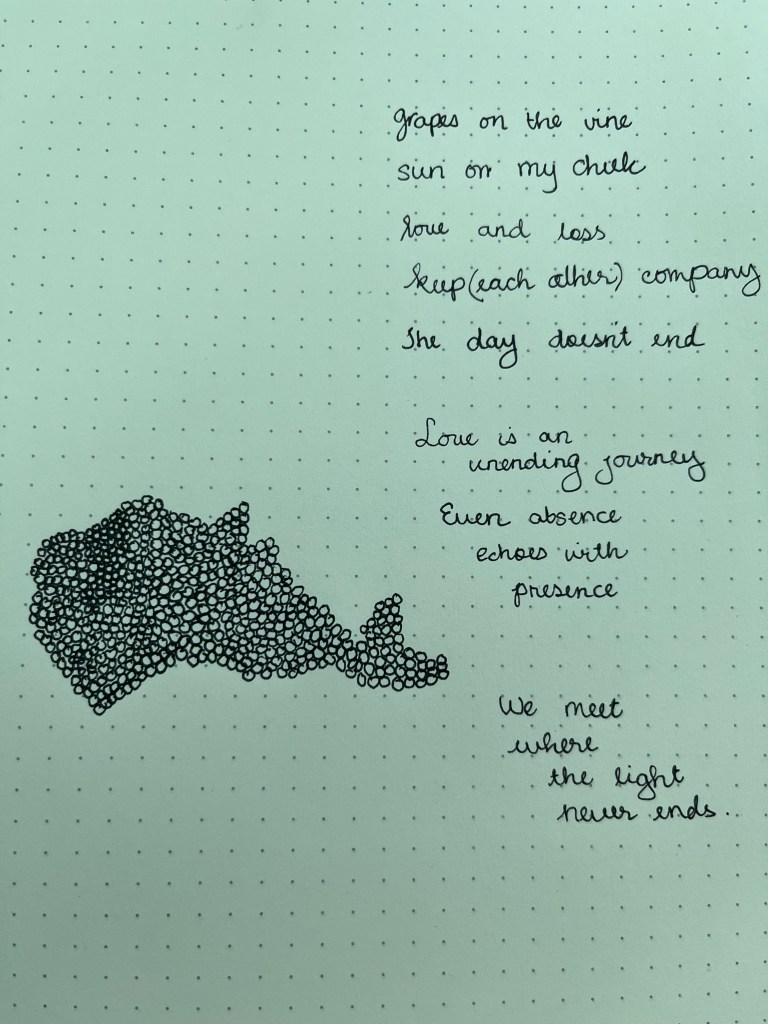 grapes on the vine
sun on my cheek
love and loss
keep (each other) company
The day doesn't end
Love is an
unending journey
Even absence
echoes with
presence
We meet
where
the light
never ends.